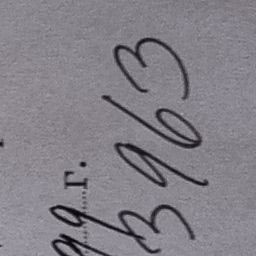 99 г.
3963